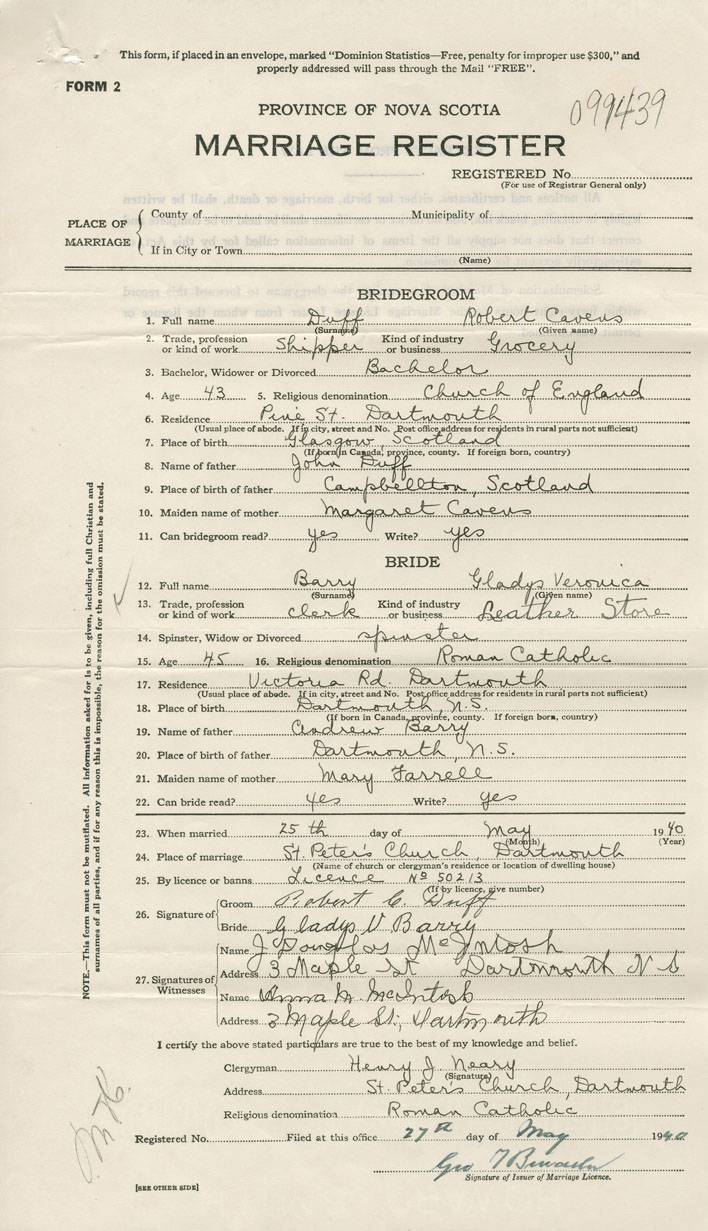 This form, if placed in an envelope, marked "Dominion Statistics—Free, penalty for improper use $300," and
properly addressed will pass through the Mail "FREE".
FORM 2
PROVINCE OF NOVA SCOTIA
099439
MARRIAGE REGISTER
REGISTERED No.
(For use of Registrar General only)
PLACE OF MARRIAGE
County of Municipality of
If in City or Town
(Name)
BRIDEGROOM
1. Full name Duff Robert Cavens
(Surname) (Given name)
2. Trade, profession or kind of work Shipper Kind of industry or business Grocery
3. Bachelor, Widower or Divorced Bachelor
4. Age 43 5. Religious denomination Church of England
6. Residence Pine St. Dartmouth
(Usual place of abode. If in city, street and No. Post office address for residents in rural parts not sufficient)
7. Place of birth Glasgow, Scotland
(If born in Canada, province, county. If foreign born, country)
8. Name of father John Duff
9. Place of birth of father Campbellton, Scotland
10. Maiden name of mother Margaret Cavens
11. Can bridegroom read? yes Write? yes
BRIDE
12. Full name Barry Gladys Veronica
(Surname) (Given name)
13. Trade, profession or kind of work clerk Kind of industry or business Leather Store
14. Spinster, Widow or Divorced spinster
15. Age 45 16. Religious denomination Roman Catholic
17. Residence Victoria Rd. Dartmouth
(Usual place of abode. If in city, street and No. Post office address for residents in rural parts not sufficient)
18. Place of birth Dartmouth, N.S.
(If born in Canada, province, county. If foreign born, country)
19. Name of father Andrew Barry
20. Place of birth of father Dartmouth, N.S.
21. Maiden name of mother Mary Farrell
22. Can bride read? yes Write? yes
23. When married 25th day of May 1940
(Month) (Year)
24. Place of marriage St. Peter's Church, Dartmouth
(Name of church or clergyman's residence or location of dwelling house)
25. By licence or banns Licence No 50213
(If by licence, give number)
26. Signature of
Groom Robert C. Duff
Bride Gladys V Barry
27. Signatures of Witnesses
Name J Douglas McIntosh
Address 3 Maple St Dartmouth N S
Name Anna M. McIntosh
Address 3 Maple St., Dartmouth
I certify the above stated particulars are true to the best of my knowledge and belief.
Clergyman Henry J. Neary
(Signature)
Address St. Peter's Church, Dartmouth
Religious denomination Roman Catholic
Registered No. Filed at this office 27th day of May 1940
Geo
Signature of Issuer of Marriage Licence.
[SEE OTHER SIDE]
NOTE.—This form must not be mutilated. All information asked for is to be given, including full Christian and
surnames of all parties, and if for any reason this is impossible, the reason for the omission must be stated.